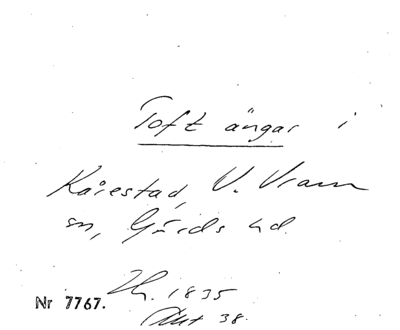 Toft ängar i
Kårestad, V. Vram
sn, Gärds hd.
1835
Nr 7767.
Akt 38.